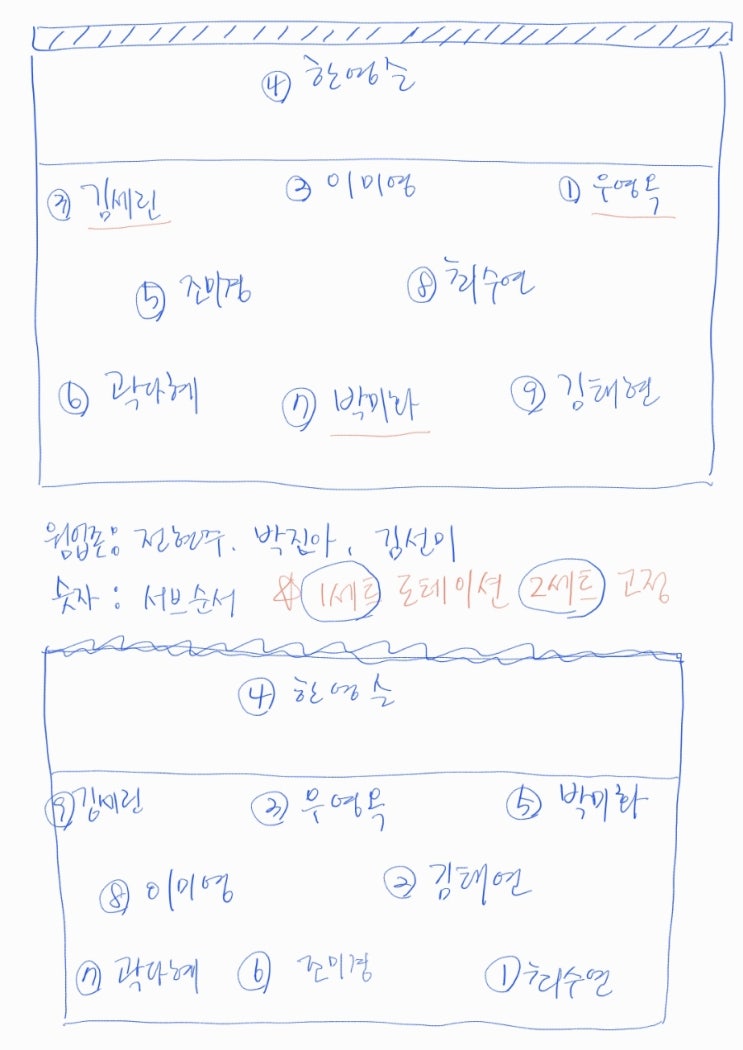 ④ 한영슬
③ 김세린 ② 이미영 ① 우영옥
⑤ 조미경 ⑧ 최수연
⑥ 곽다혜 ⑦ 박미화 ⑨ 김태현
웜업존: 전현주. 박진아, 김선미
숫자 : 서브순서 1세트 로테이션 2세트 고정
④ 한영슬
⑨ 김세린 ③ 우영옥 ⑤ 박미화
⑧ 이미영 ② 김태연
⑦ 곽다혜 ⑥ 조미경 ① 최수연